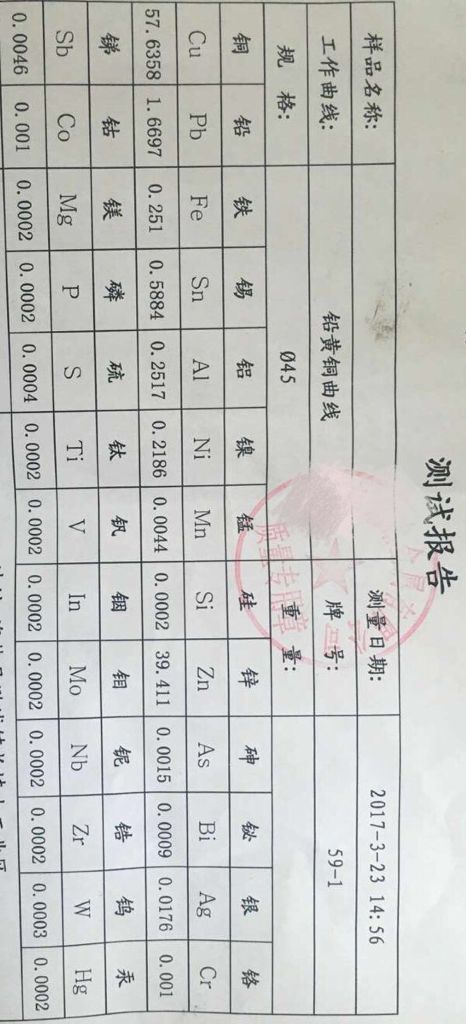 测试报告
样品名称: 测量日期: 2017-3-23 14:56
工作曲线: 铅黄铜曲线 牌 号: 59-1
规 格: Ø45 重 量:
铜 铅 铁 锡 铝 镍 锰 硅 锌 砷 铋 银 铬
Cu Pb Fe Sn Al Ni Mn Si Zn As Bi Ag Cr
57.6358 1.6697 0.251 0.5884 0.2517 0.2186 0.0044 0.0002 39.411 0.0015 0.0009 0.0176 0.001
锑 钴 镁 磷 硫 钛 钒 铟 钼 铌 锆 钨 汞
Sb Co Mg P S Ti V In Mo Nb Zr W Hg
0.0046 0.001 0.0002 0.0002 0.0004 0.0002 0.0002 0.0002 0.0002 0.0002 0.0002 0.0003 0.0002
质量专用章